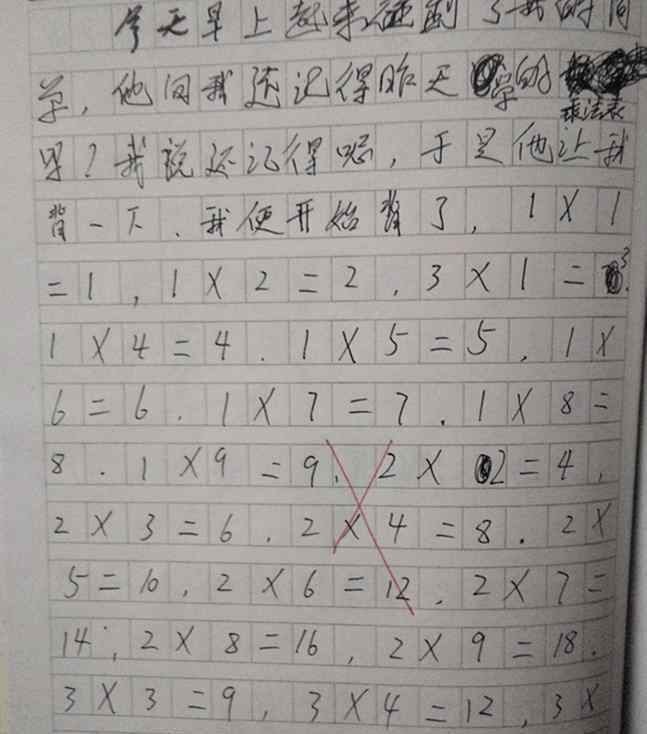 今天早上起来碰到了我的同
学,他问我还记得昨天学的乘法表
吗?我说还记得呢,于是他让我
背一下、我便开始背了,1×1
=1,1×2=2,3×1=3.
1×4=4.1×5=5,1×
6=6.1×7=7.1×8=
8.1×9=9、2×2=4,
2×3=6.2×4=8.2×
5=10,2×6=12、2×7=
14,2×8=16,2×9=18.
3×3=9,3×4=12,3×